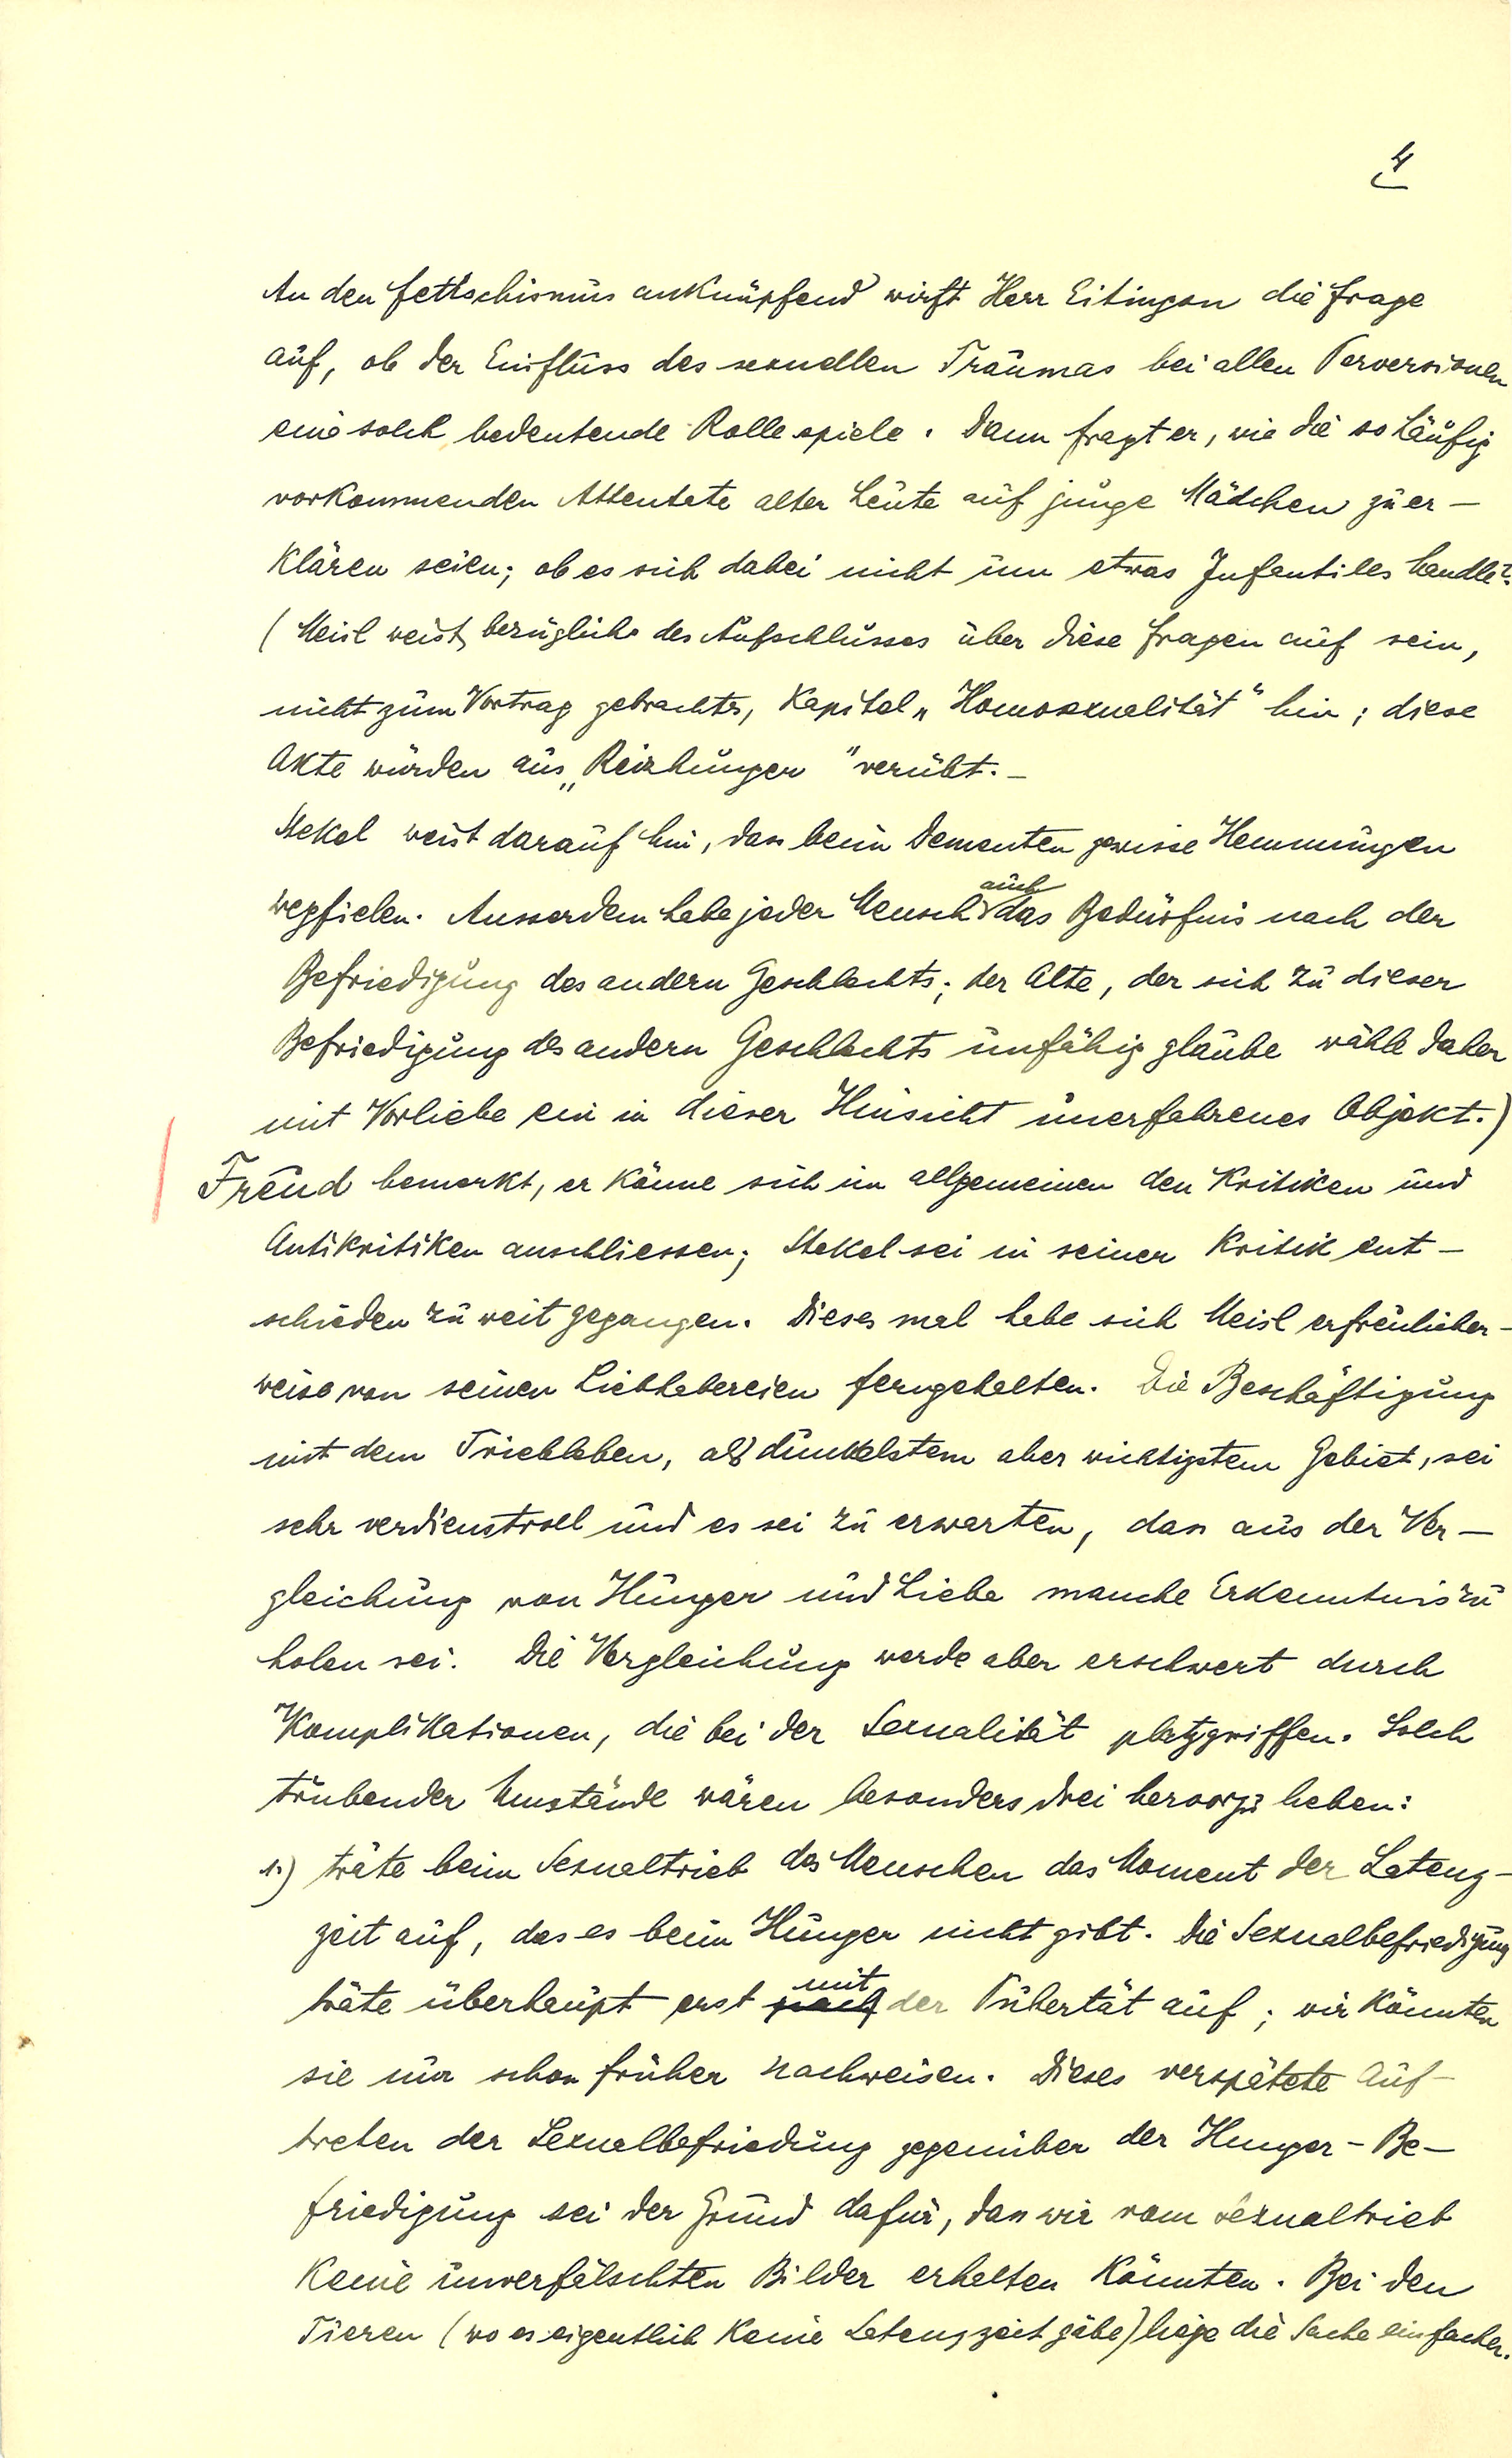 4
An den Fetischismus anknüpfend wirft Herr Eitingon die Frage
auf, ob der Einfluss des sexuellen Traumas bei allen Perversionen
eine solch bedeutende Rolle spiele. Dann fragt er, wie die so häufig
vorkommenden Attentate alter Leute auf junge Mädchen zu er-
klären seien; ob es sich dabei nicht um etwas Infantiles handle?
(Meisl weist bezüglich des Aufschlusses über diese Fragen auf sein,
nicht zum Vortrag gebrachtes, Kapitel „Homosexualität" hin; diese
Akte würden aus „Reizhunger" verübt.-
Stekel weist darauf hin, dass beim Dementen gewisse Hemmungen
wegfielen. Ausserdem habe jeder Mensch auch das Bedürfnis nach der
Befriedigung des andern Geschlechts; der Alte, der sich zu dieser
Befriedigung des andern Geschlechts unfähig glaube wähle daher
mit Vorliebe ein in dieser Hinsicht unerfahrenes Objekt.)
Freud bemerkt, er könne sich im allgemeinen den Kritiken und
Antikritiken anschliessen; Stekel sei in seiner Kritik ent-
schieden zu weit gegangen. Dieses mal habe sich Meisl erfreulicher-
weise von seinen Liebhabereien ferngehalten. Die Beschäftigung
mit dem Triebleben, als dunkelstem aber wichtigstem Gebiet, sei
sehr verdienstvoll und es sei zu erwarten, dass aus der Ver-
gleichung von Hunger und Liebe manche Erkenntnis zu
holen sei. Die Vergleichung werde aber erschwert durch
Komplikationen, die bei der Sexualität platzgriffen. Solch
trübender Umstände wären besonders drei hervorzuheben:
1.) träte beim Sexualtrieb des Menschen das Moment der Latenz-
zeit auf, das es beim Hunger nicht gibt. Die Sexualbefriedigung
träte überhaupt erst nach mit der Pubertät auf; wir könnten
sie nur schon früher nachweisen. Dieses verspätete Auf-
treten der Sexualbefriedung gegenüber der Hunger-Be-
friedigung sei der Grund dafür, dass wir vom Sexualtrieb
keine unverfälschten Bilder erhalten könnten. Bei den
Tieren (wo es eigentlich keine Latenzzeit gäbe) liege die Sache einfacher.